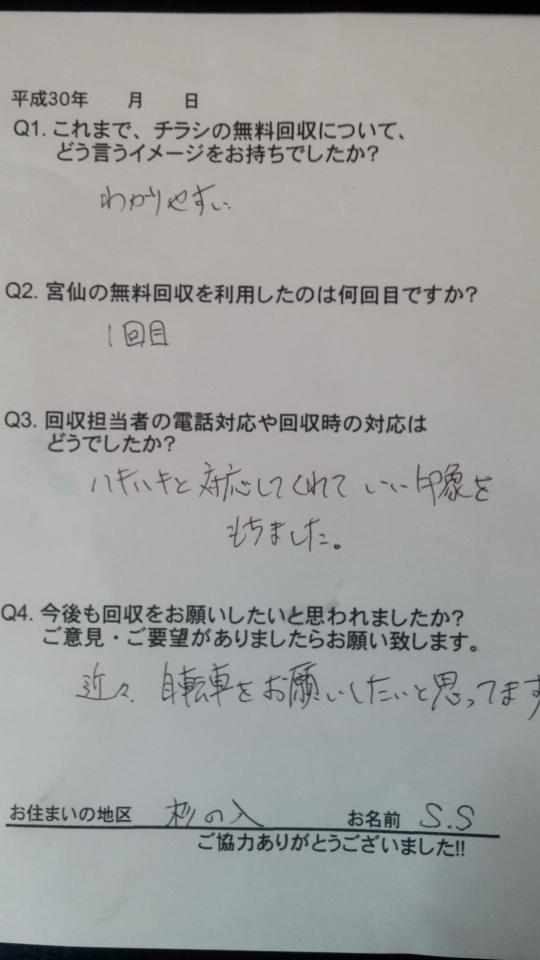 平成30年　　月　　日
Q1. これまで、チラシの無料回収について、
どう言うイメージをお持ちでしたか？
わかりやすい
Q2. 宮仙の無料回収を利用したのは何回目ですか？
1回目
Q3. 回収担当者の電話対応や回収時の対応は
どうでしたか？
ハキハキと対応してくれていい印象を
もちました。
Q4. 今後も回収をお願いしたいと思われましたか？
ご意見・ご要望がありましたらお願い致します。
近々、自転車をお願いしたいと思ってます
お住まいの地区　杉の入　お名前　S.S
ご協力ありがとうございました!!